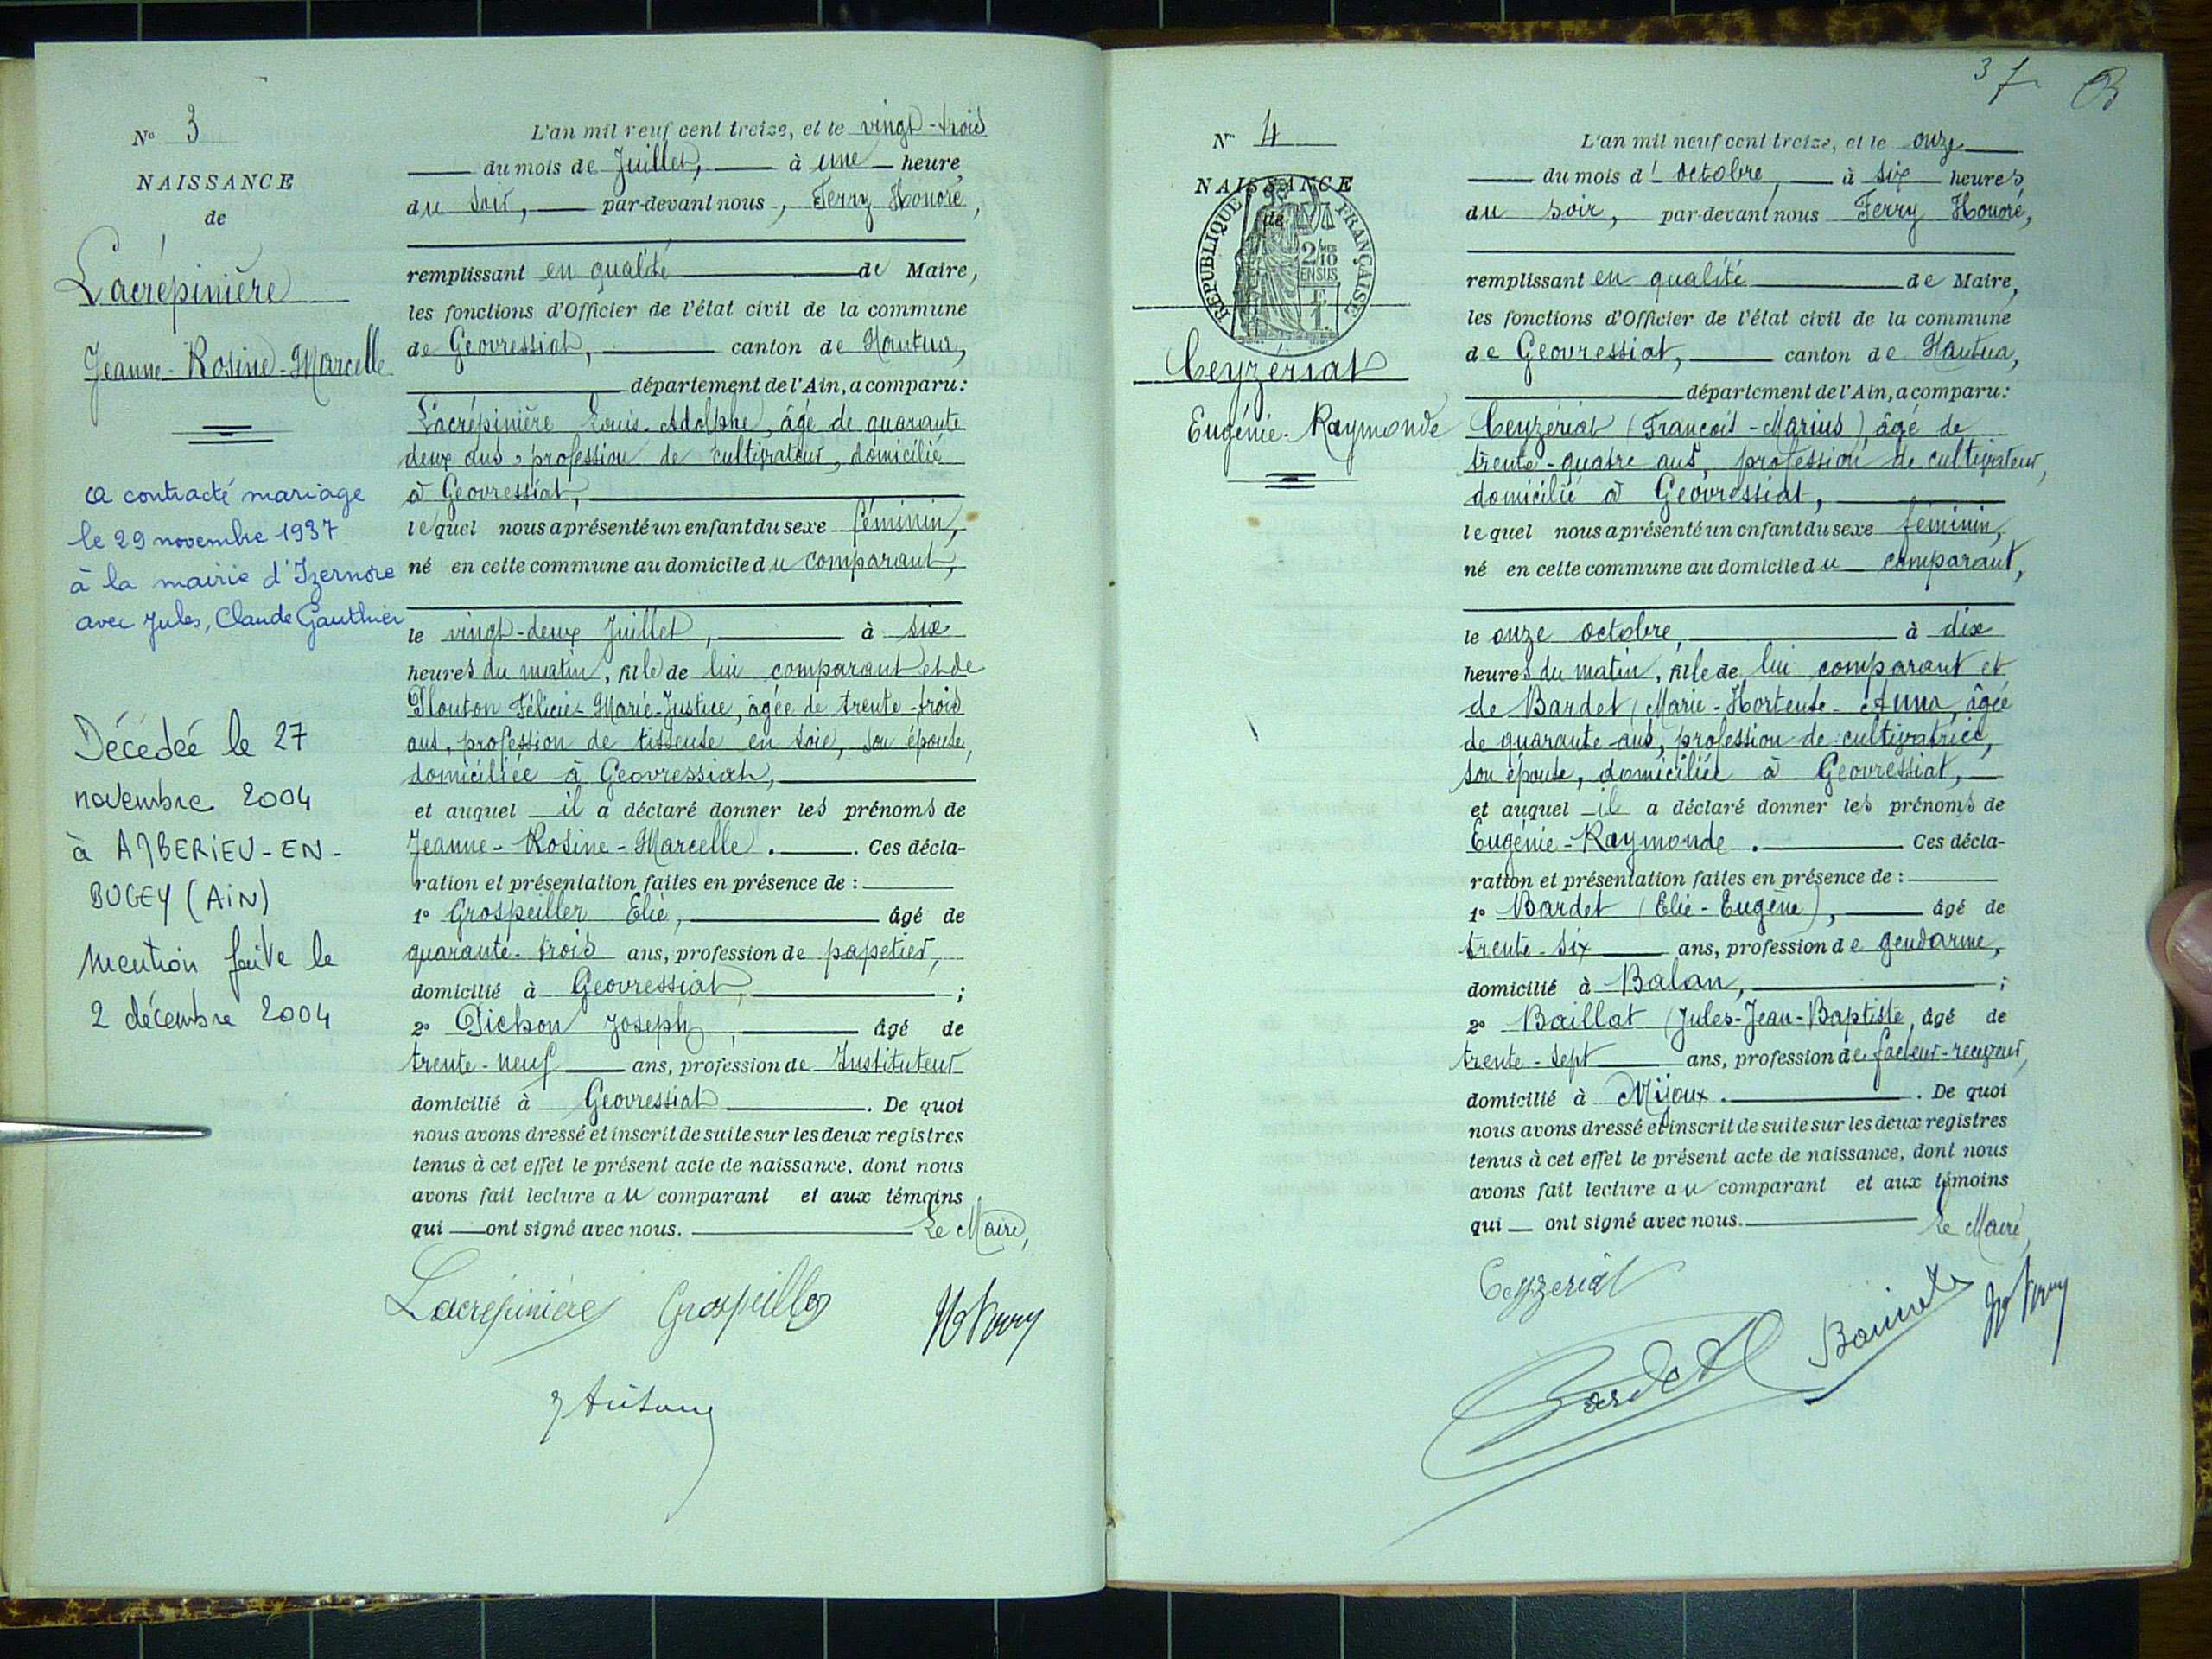 N° 3
NAISSANCE
de
Lacrépinière
Jeanne-Rosine-Marcelle
a contracté mariage
le 29 novembre 1937
à la mairie d'Izernore
avec Jules, Claude Gauthier
Décédée le 27
novembre 2004
à AMBERIEU-EN-
BUGEY (AIN)
Mention faite le
2 décembre 2004
L'an mil neuf cent treize, et le vingt-trois
du mois de Juillet, à une heure,
du soir, par-devant nous, Ferry Honoré,
remplissant en qualité de Maire,
les fonctions d'Officier de l'état civil de la commune
de Géovressiat, canton de Nantua,
département de l'Ain, a comparu:
Lacrépinière Louis-Adolphe, âgé de quarante
deux ans, profession de cultivateur, domicilié
à Géovressiat,
lequel nous a présenté un enfant du sexe féminin,
né en cette commune au domicile du comparant,
le vingt-deux Juillet, à six
heures du matin, fille de lui comparant et de
Plouton Félicie-Marie-Justice, âgée de trente-trois
ans, profession de tisseuse en soie, son épouse,
domiciliée à Géovressiat,
et auquel il a déclaré donner les prénoms de
Jeanne-Rosine-Marcelle. Ces décla-
ration et présentation faites en présence de:
1° Grospeiller Elie, âgé de
quarante-trois ans, profession de papetier,
domicilié à Géovressiat,;
2° Pichon Joseph, âgé de
trente-neuf ans, profession de Instituteur
domicilié à Géovressiat. De quoi
nous avons dressé et inscrit de suite sur les deux registres
tenus à cet effet le présent acte de naissance, dont nous
avons fait lecture au comparant et aux témoins
qui ont signé avec nous. Le Maire,
Lacrépinière Grospeiller
37
N° 4
NAISSANCE
de
RÉPUBLIQUE FRANÇAISE
2/10 MES
EN SUS
F.
1.
Ceyzériat
Eugénie-Raymonde
L'an mil neuf cent treize, et le onze
du mois d'octobre, à six heures
du soir, par-devant nous Ferry Honoré,
remplissant en qualité de Maire,
les fonctions d'Officier de l'état civil de la commune
de Géovressiat, canton de Nantua,
département de l'Ain, a comparu:
Ceyzériat (François-Marius), âgé de
trente-quatre ans, profession de cultivateur,
domicilié à Géovressiat,
lequel nous a présenté un enfant du sexe féminin,
né en cette commune au domicile du comparant,
le onze octobre, à dix
heures du matin, fille de lui comparant et
de Bardet (Marie-Hortense-Anna, âgée
de quarante ans, profession de cultivatrice,
son épouse, domiciliée à Géovressiat,
et auquel il a déclaré donner les prénoms de
Eugénie-Raymonde. Ces décla-
ration et présentation faites en présence de:
1° Bardet (Elie-Eugène), âgé de
trente-six ans, profession de gendarme,
domicilié à Balan,;
2° Baillat (Jules-Jean-Baptiste, âgé de
trente-sept ans, profession de facteur-receveur,
domicilié à Mijoux. De quoi
nous avons dressé et inscrit de suite sur les deux registres
tenus à cet effet le présent acte de naissance, dont nous
avons fait lecture au comparant et aux témoins
qui ont signé avec nous. Le Maire,
Ceyzeriat
Bardet